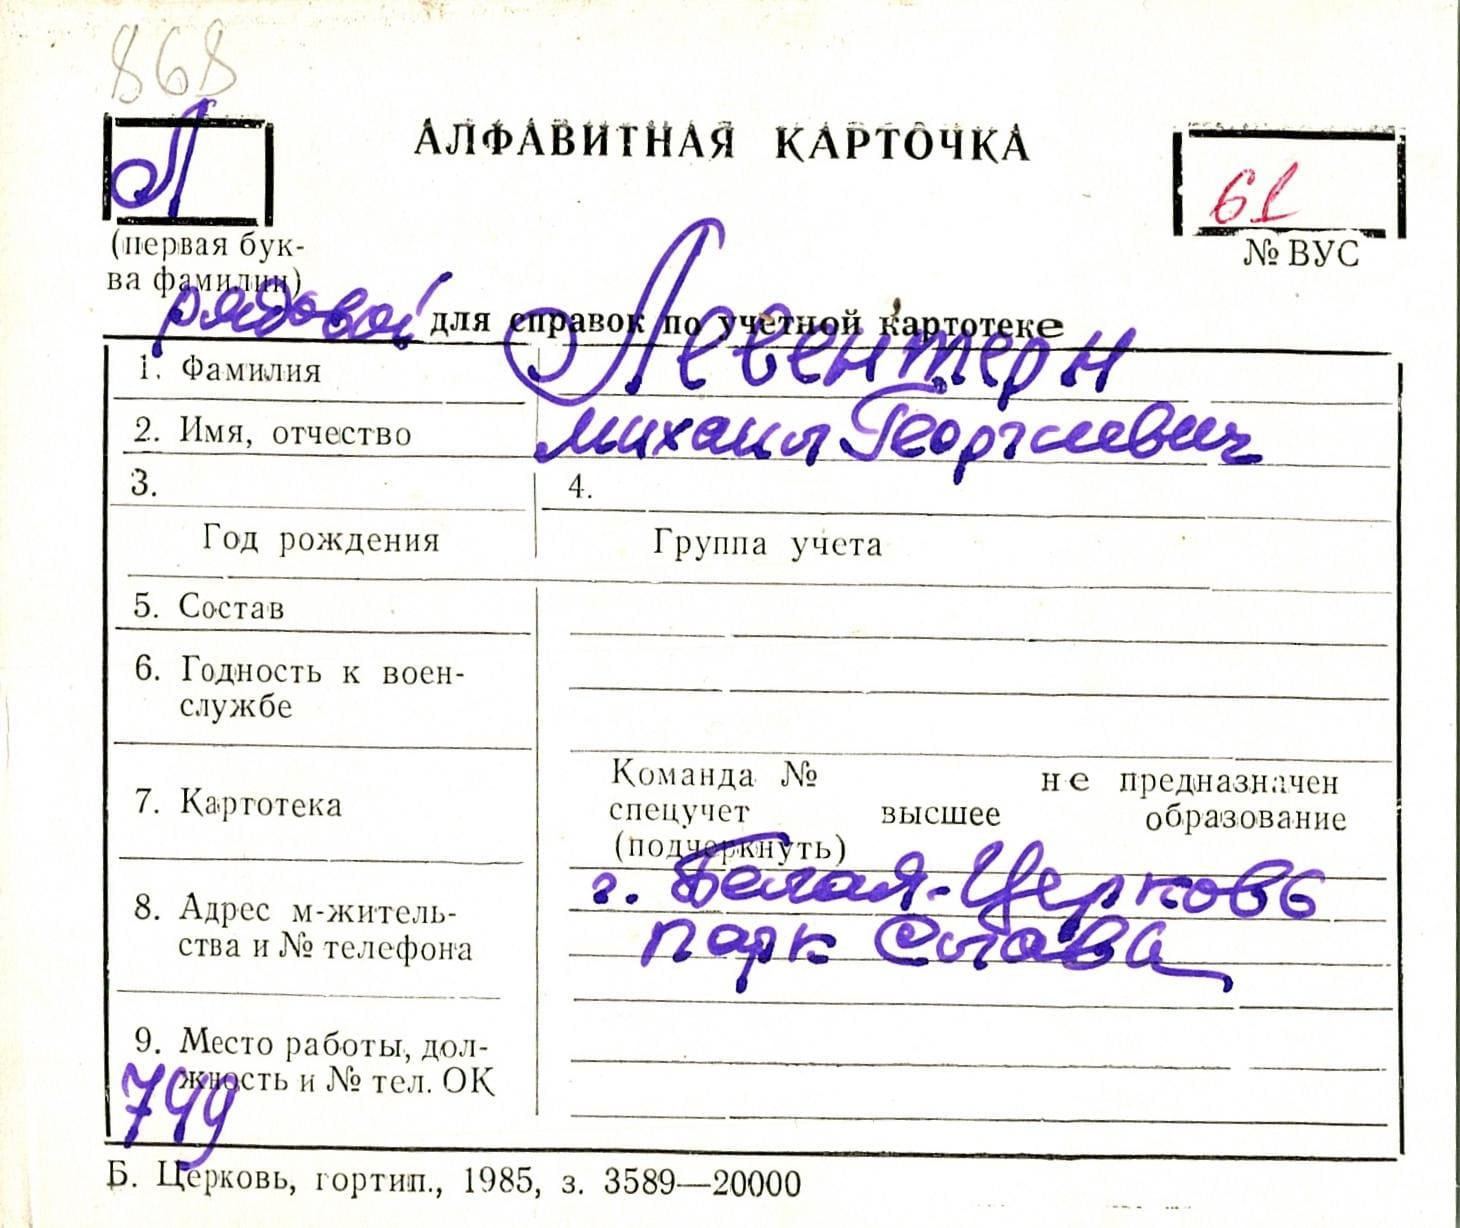 868
Л
АЛФАВИТНАЯ КАРТОЧКА
61
(первая бук-
ва фамилии)
№ ВУС
рядовой для справок по учетной картотеке
1. Фамилия Левентерн
2. Имя, отчество Михаил Георгиевич
3. 4.
Год рождения Группа учета
5. Состав
6. Годность к воен-
службе
7. Картотека
Команда № не предназначен
спецучет высшее образование
(подчеркнуть)
8. Адрес м-житель-
ства и № телефона
г. Белая-Церковь
парк Слава
9. Место работы, дол-
жность и № тел. ОК
749
Б. Церковь, гортип., 1985, з. 3589—20000